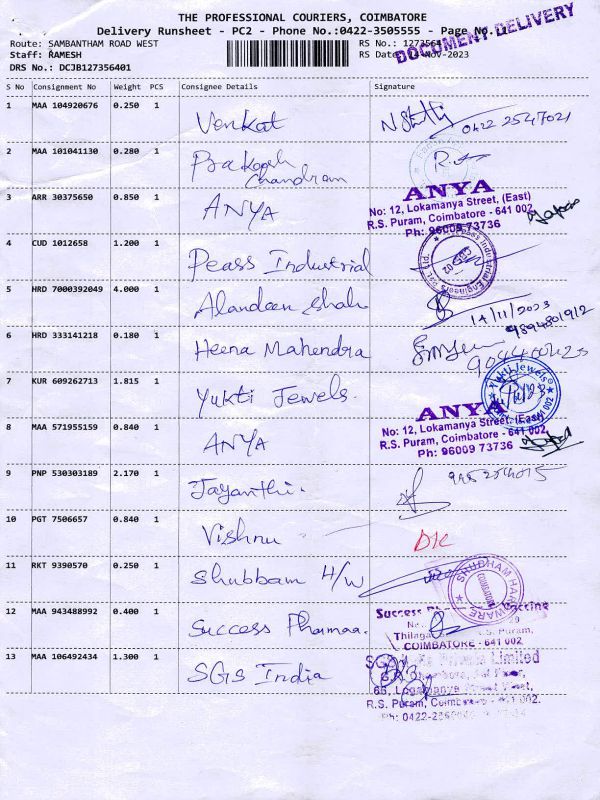 THE PROFESSIONAL COURIERS, COIMBATORE
Delivery Runsheet - PC2 - Phone No.:0422-3505555 - Page No.
DOCUMENT DELIVERY
Route: SAMBANTHAM ROAD WEST
Staff: RAMESH
DRS No.: DCJB127356401
RS No.: 12735640
RS Date: -Nov-2023
S No Consignment No Weight PCS Consignee Details Signature
1 MAA 104920676 0.250 1 Venkat 0422 2547021
2 MAA 101041130 0.280 1 Prakash Chandran
3 ARR 30375650 0.850 1 ANYA
ANYA
No: 12, Lokamanya Street, (East)
R.S. Puram, Coimbatore - 641 002
Ph: 96009 73736
4 CUD 1012658 1.200 1 Peass Industrial
Peass Industrial Engineers Pvt. Ltd.
5 HRD 7000392049 4.000 1 Alandeen Shah
14/11/2023
9894801912
6 HRD 333141218 0.180 1 Heena Mahendra
7 KUR 609262713 1.815 1 Yukti Jewels.
Yukti Jewels
8 MAA 571955159 0.840 1 ANYA
ANYA
No: 12, Lokamanya Street, (East)
R.S. Puram, Coimbatore - 641 002
Ph: 96009 73736
9 PNP 530303189 2.170 1 Jayanthi.
10 PGT 7506657 0.840 1 Vishnu
11 RKT 9390570 0.250 1 Shubbam H/W
SHUBHAM HARDWARE
COIMBATORE
12 MAA 943488992 0.400 1 Success Pharmaa.
Success Vaccine
R.S. Puram,
COIMBATORE - 641 002
13 MAA 106492434 1.300 1 SGS India
SGS Private Limited
R.S. Puram, Coimbatore - 641 002.